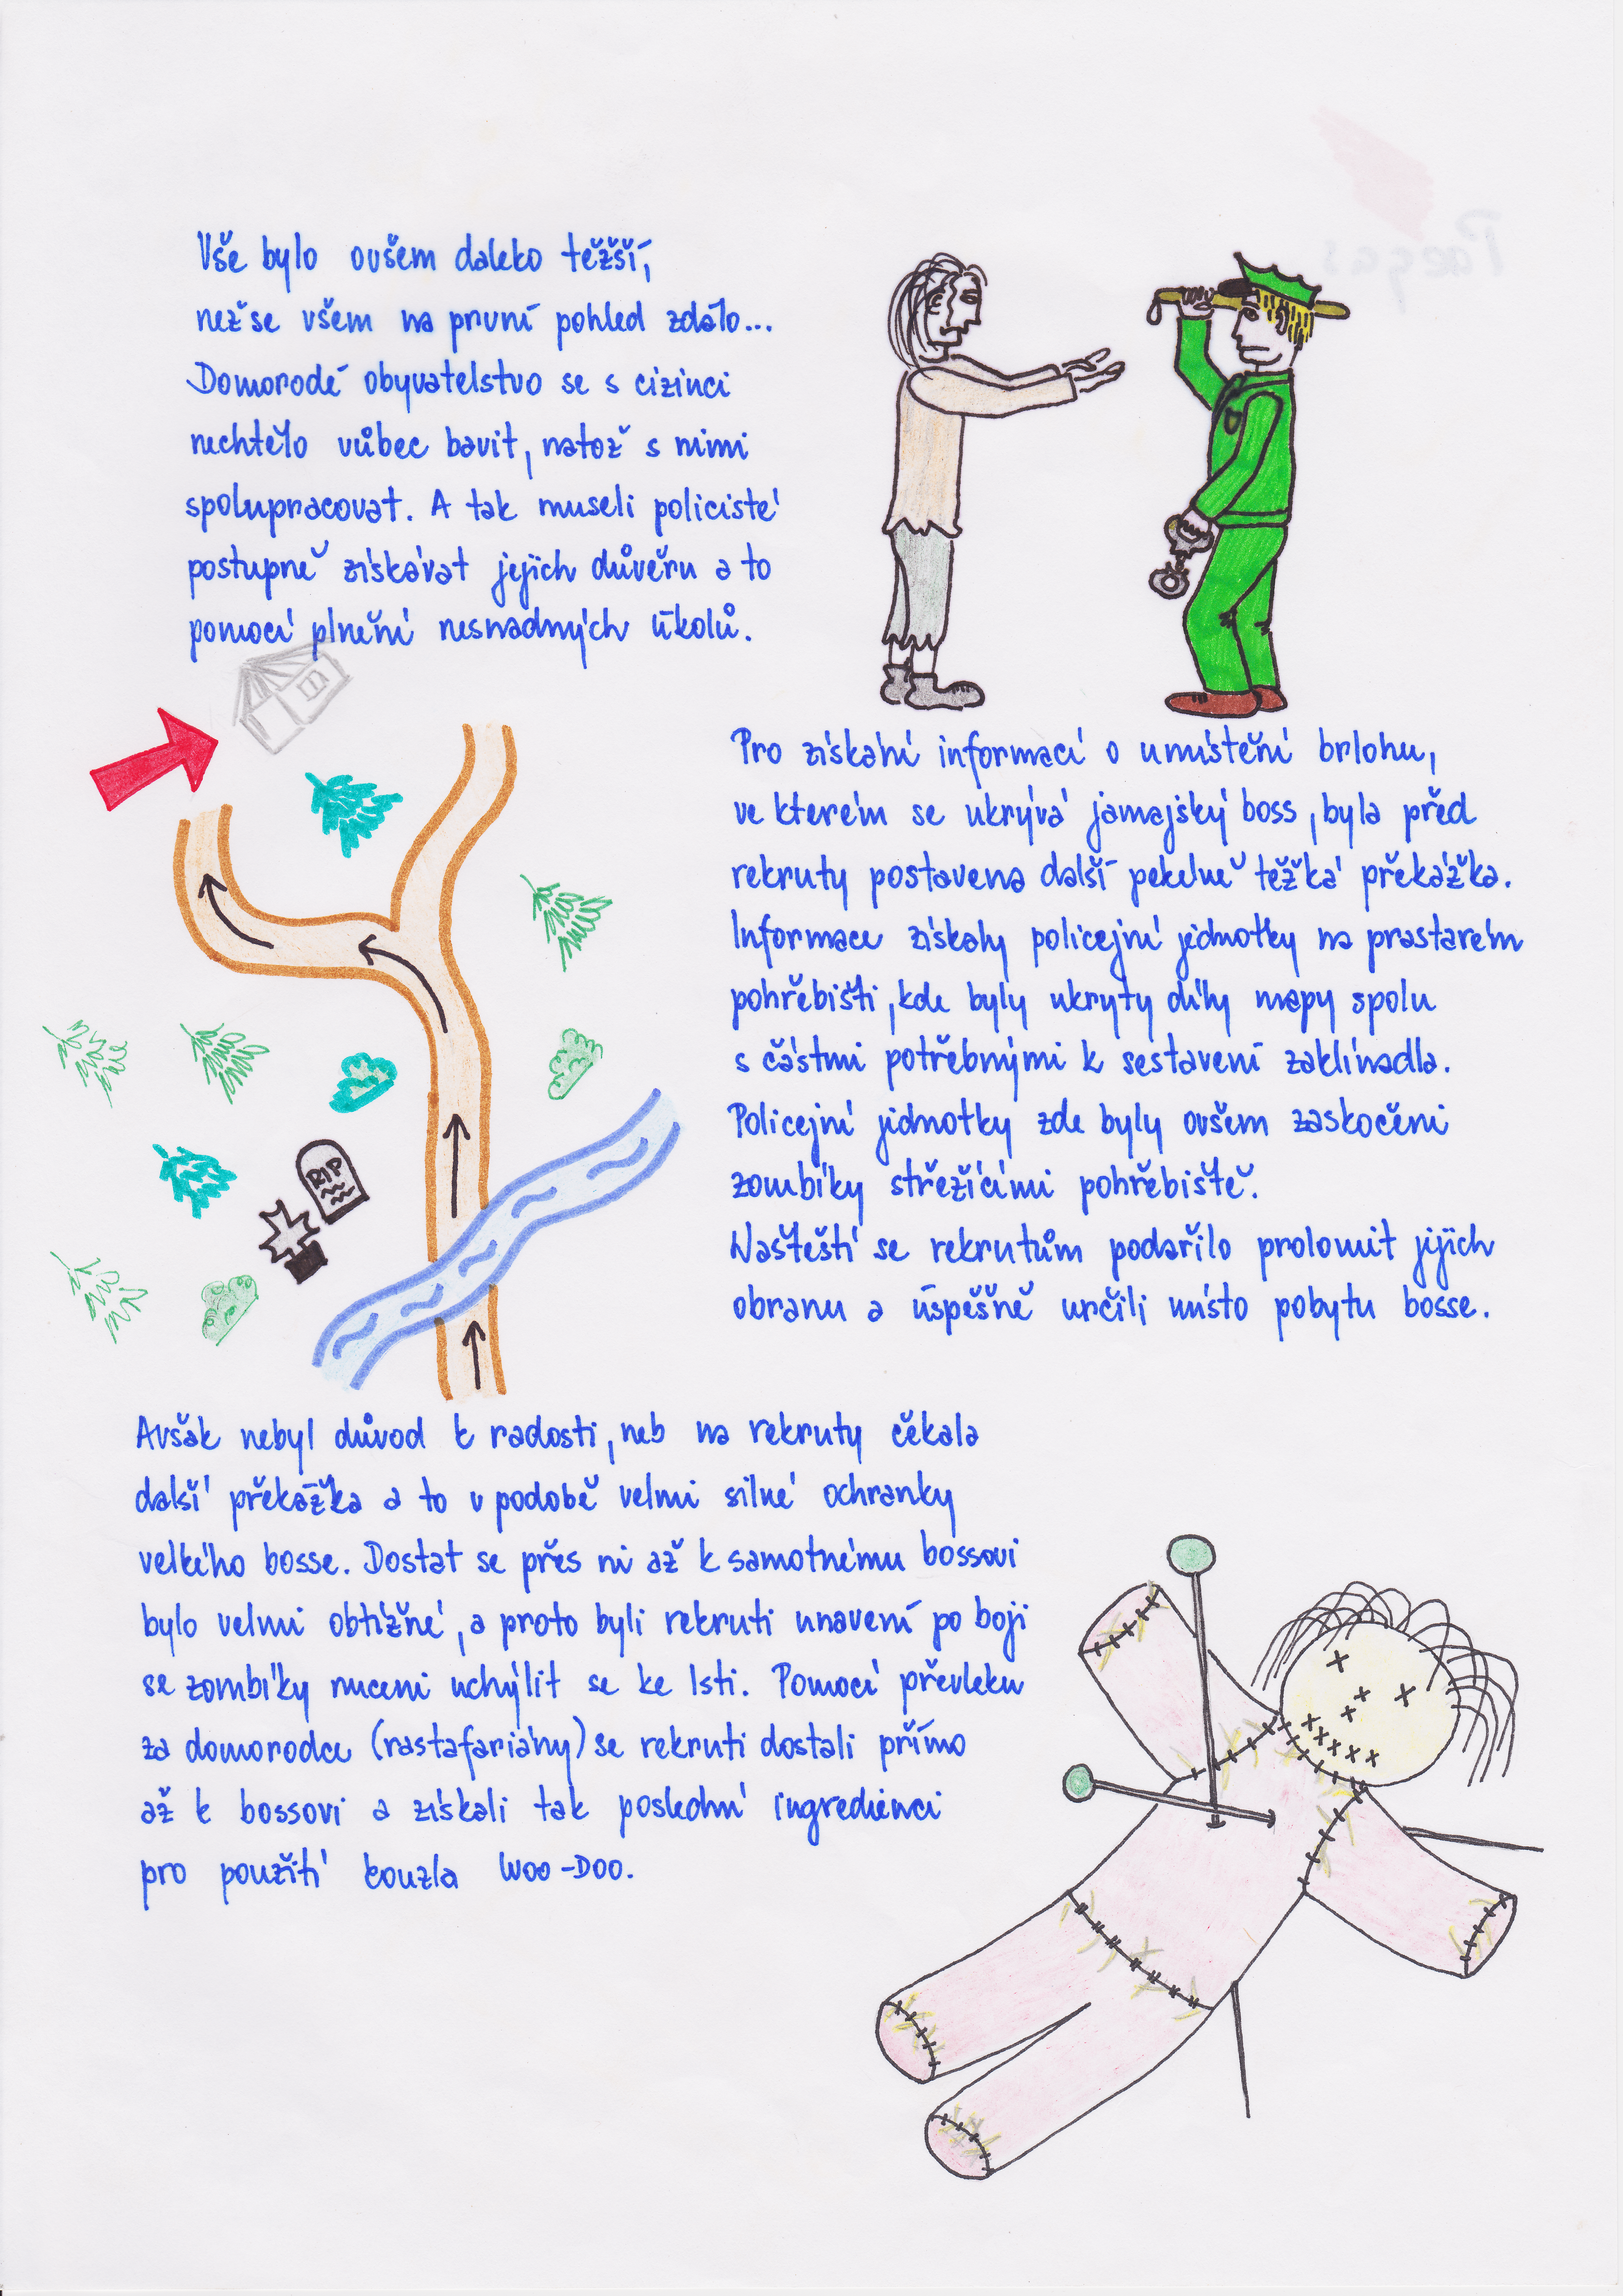 Vše bylo ovšem daleko těžší,
než se všem na první pohled zdálo...
Domorodé obyvatelstvo se s cizinci
nechtělo vůbec bavit, natož s nimi
spolupracovat. A tak museli policisté
postupně získávat jejich důvěru a to
pomocí plnění nesnadných úkolů.
Pro získání informací o umístění brlohu,
ve kterém se ukrývá jamajský boss, byla před
rekruty postavena další pekelně těžká překážka.
Informace získaly policejní jednotky na prastarém
pohřebišti, kde byly ukryty díly mapy spolu
s částmi potřebnými k sestavení zaklínadla.
Policejní jednotky zde byly ovšem zaskočeni
zombíky střežícími pohřebiště.
Naštěstí se rekrutům podařilo prolomit jejich
obranu a úspěšně určili místo pobytu bosse.
RIP
Avšak nebyl důvod k radosti, neb na rekruty čekala
další překážka a to v podobě velmi silné ochranky
velkého bosse. Dostat se přes ni až k samotnému bossovi
bylo velmi obtížné, a proto byli rekruti unavení po boji
se zombíky nuceni uchýlit se ke lsti. Pomocí převleku
za domorodce (rastafariány) se rekruti dostali přímo
až k bossovi a získali tak poslední ingredienci
pro použití kouzla Woo-Doo.